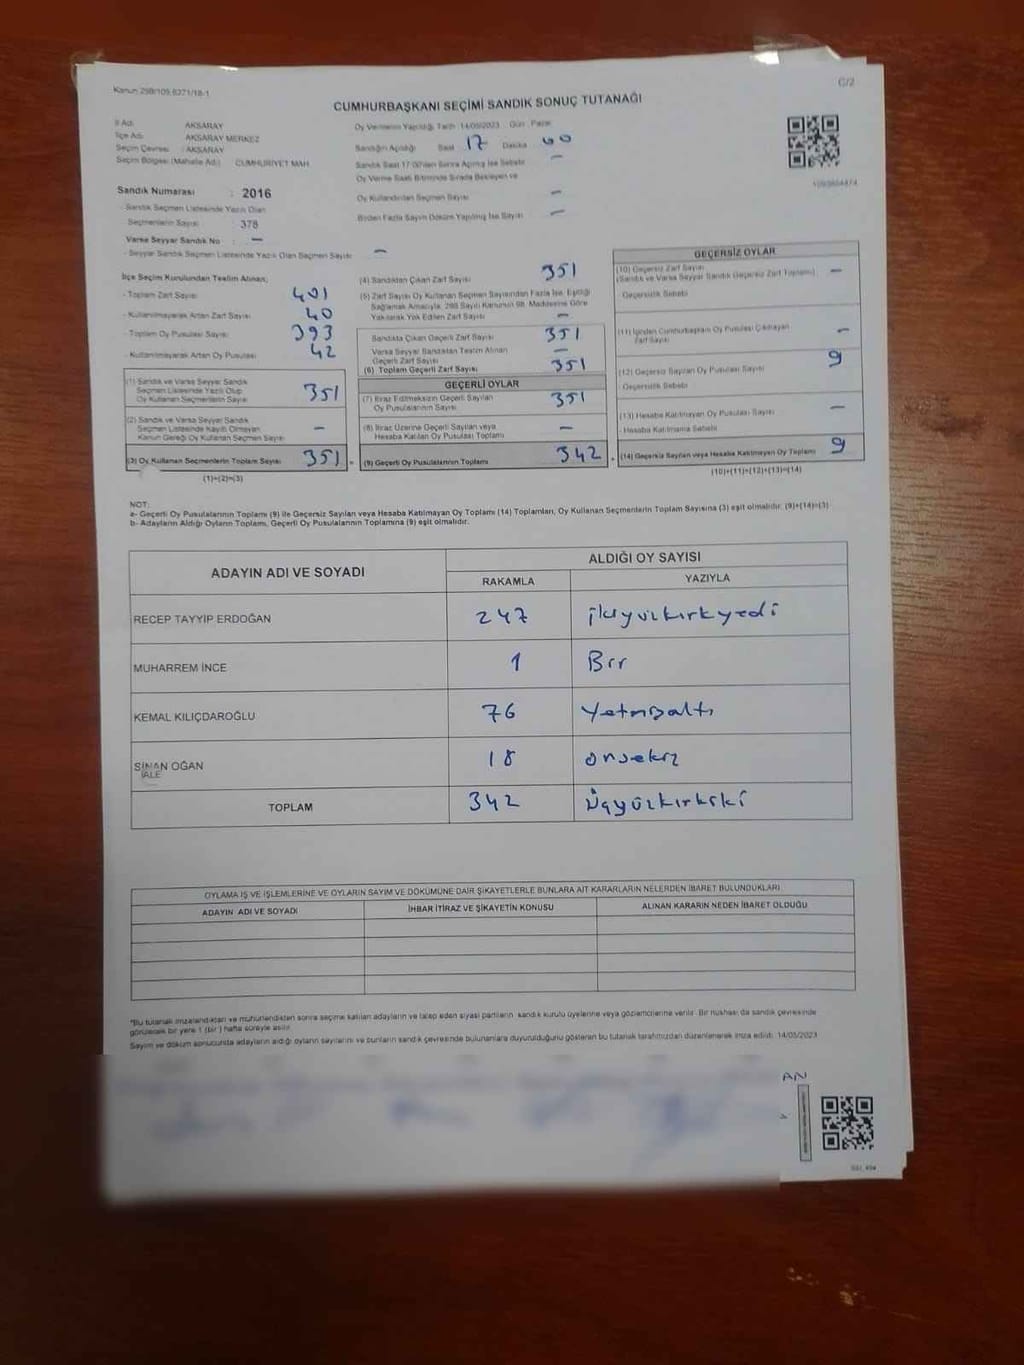 Kanun 298/109,6271/18-1
C/2
CUMHURBAŞKANI SEÇİMİ SANDIK SONUÇ TUTANAĞI
İl Adı : AKSARAY
İlçe Adı : AKSARAY MERKEZ
Seçim Çevresi : AKSARAY
Seçim Bölgesi (Mahalle Adı) : CUMHURİYET MAH
Sandık Numarası : 2016
- Sandık Seçmen Listesinde Yazılı Olan
Seçmenlerin Sayısı : 378
Varsa Seyyar Sandık No : —
- Seyyar Sandık Seçmen Listesinde Yazılı Olan Seçmen Sayısı : —
Oy Vermenin Yapıldığı Tarih : 14/05/2023 Gün : Pazar
Sandığın Açıldığı : Saat 17 Dakika 00
Sandık Saat 17:00'den Sonra Açılmış İse Sebebi —
Oy Verme Saati Bitiminde Sırada Bekleyen ve
Oy Kullandırılan Seçmen Sayısı —
Birden Fazla Sayım Döküm Yapılmış İse Sayısı —
İlçe Seçim Kurulundan Teslim Alınan;
- Toplam Zarf Sayısı 401
- Kullanılmayarak Artan Zarf Sayısı 40
- Toplam Oy Pusulası Sayısı 393
- Kullanılmayarak Artan Oy Pusulası 42
(1) Sandık ve Varsa Seyyar Sandık
Seçmen Listesinde Yazılı Olup
Oy Kullanan Seçmenlerin Sayısı 351
(2) Sandık ve Varsa Seyyar Sandık
Seçmen Listesinde Kayıtlı Olmayan
Kanun Gereği Oy Kullanan Seçmen Sayısı —
(3) Oy Kullanan Seçmenlerin Toplam Sayısı 351 =
(1)+(2)=(3)
(4) Sandıktan Çıkan Zarf Sayısı 351
(5) Zarf Sayısı Oy Kullanan Seçmen Sayısından Fazla İse, Eşitliği
Sağlamak Amacıyla, 298 Sayılı Kanunun 98. Maddesine Göre
Yakılarak Yok Edilen Zarf Sayısı —
Sandıkta Çıkan Geçerli Zarf Sayısı 351
Varsa Seyyar Sandıktan Teslim Alınan
Geçerli Zarf Sayısı —
(6) Toplam Geçerli Zarf Sayısı 351
GEÇERLİ OYLAR
(7) İtiraz Edilmeksizin Geçerli Sayılan
Oy Pusulalarının Sayısı 351
(8) İtiraz Üzerine Geçerli Sayılan veya
Hesaba Katılan Oy Pusulası Toplamı —
(9) Geçerli Oy Pusulalarının Toplamı 342 +
GEÇERSİZ OYLAR
(10) Geçersiz Zarf Sayısı
(Sandık ve Varsa Seyyar Sandık Geçersiz Zarf Toplamı) —
Geçersizlik Sebebi
(11) İçinden Cumhurbaşkanı Oy Pusulası Çıkmayan
Zarf Sayısı —
(12) Geçersiz Sayılan Oy Pusulası Sayısı 9
Geçersizlik Sebebi
(13) Hesaba Katılmayan Oy Pusulası Sayısı —
- Hesaba Katılmama Sebebi
(14) Geçersiz Sayılan veya Hesaba Katılmayan Oy Toplamı 9
(10)+(11)+(12)+(13)=(14)
NOT:
a- Geçerli Oy Pusulalarının Toplamı (9) ile Geçersiz Sayılan veya Hesaba Katılmayan Oy Toplamı (14) Toplamları, Oy Kullanan Seçmenlerin Toplam Sayısına (3) eşit olmalıdır. (9)+(14)=(3)
b- Adayların Aldığı Oyların Toplamı, Geçerli Oy Pusulalarının Toplamına (9) eşit olmalıdır.
ADAYIN ADI VE SOYADI
ALDIĞI OY SAYISI
RAKAMLA YAZIYLA
RECEP TAYYİP ERDOĞAN 247 ikiyüzkırkyedi
MUHARREM İNCE 1 Bir
KEMAL KILIÇDAROĞLU 76 Yetmişaltı
SİNAN OĞAN 18 onsekiz
TOPLAM 342 Üçyüzkırkiki
OYLAMA İŞ VE İŞLEMLERİNE VE OYLARIN SAYIM VE DÖKÜMÜNE DAİR ŞİKAYETLERLE BUNLARA AİT KARARLARIN NELERDEN İBARET BULUNDUKLARI
ADAYIN ADI VE SOYADI İHBAR İTİRAZ VE ŞİKAYETİN KONUSU ALINAN KARARIN NEDEN İBARET OLDUĞU
*Bu tutanak imzalandıktan ve mühürlendikten sonra seçime katılan adayların ve talep eden siyasi partilerin sandık kurulu üyelerine veya gözlemcilerine verilir. Bir nüshası da sandık çevresinde
görülecek bir yere 1 (bir) hafta süreyle asılır.
Sayım ve döküm sonucunda adayların aldığı oyların sayılarını ve bunların sandık çevresinde bulunanlara duyurulduğunu gösteren bu tutanak tarafımızdan düzenlenerek imza edildi. 14/05/2023
AN